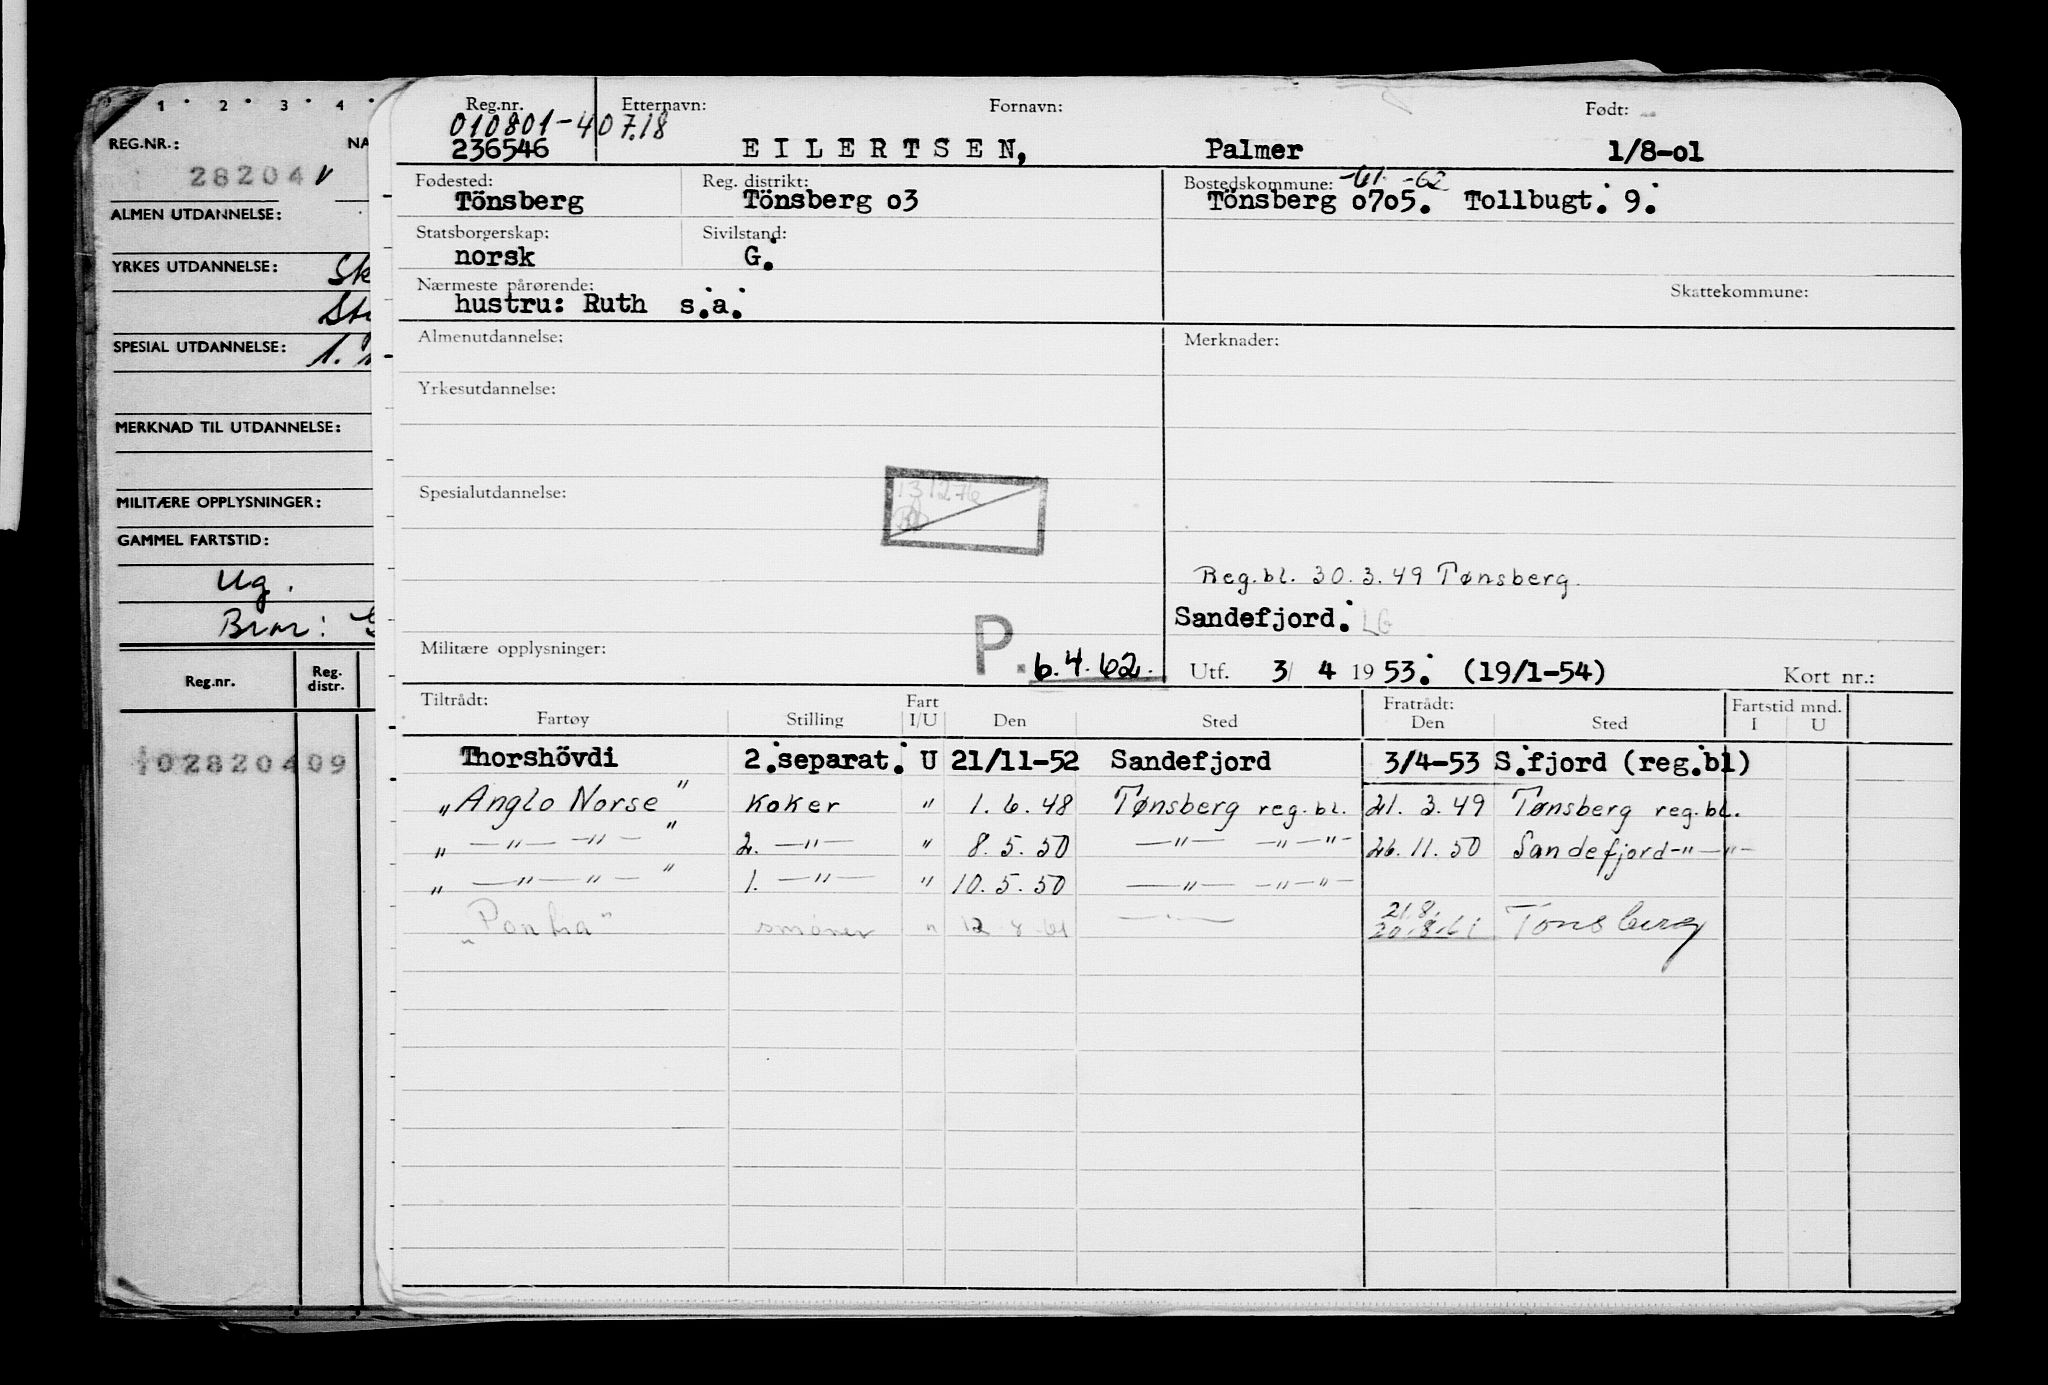 1 2 3 4
REG.NR.: NA
28204
ALMEN UTDANNELSE:
YRKES UTDANNELSE: Sk
St
SPESIAL UTDANNELSE: 1.
MERKNAD TIL UTDANNELSE:
MILITÆRE OPPLYSNINGER:
GAMMEL FARTSTID:
Ug.
Reg.nr. Reg. distr.
02820409
Reg.nr. Etternavn: Fornavn: Født:
010801-40718
236546 EILERTSEN, Palmer 1/8-o1
Fødested: Reg. distrikt: Bostedskommune: -61 -62
Tönsberg Tönsberg o3 Tönsberg o7o5. Tollbugt. 9.
Statsborgerskap: Sivilstand:
norsk G.
Nærmeste pårørende: Skattekommune:
hustru: Ruth s.a.
Almenutdannelse: Merknader:
Yrkesutdannelse:
Spesialutdannelse:
131276
Reg.bl. 30.3.49 Tønsberg.
Sandefjord. LG
Militære opplysninger: P. 6.4.62. Utf. 3/ 4 1953. (19/1-54) Kort nr.:
Tiltrådt: Fart Fratrådt: Fartstid mnd.
Fartøy Stilling I/U Den Sted Den Sted I U
Thorshövdi 2.separat. U 21/11-52 Sandefjord 3/4-53 S.fjord (reg.bl)
„Anglo Norse" Koker " 1.6.48 Tønsberg reg.bl. 21.3.49 Tønsberg reg.bl.
„ —"— —"— " 2. —"— " 8.5.50 —"— —"—"— 26.11.50 Sandefjord-"—"-
„ —"— —"— " 1. —"— " 10.5.50 —"— —"—"—
smører " 12 8 61 —"— 21.8. 20.8.61 Tønsberg